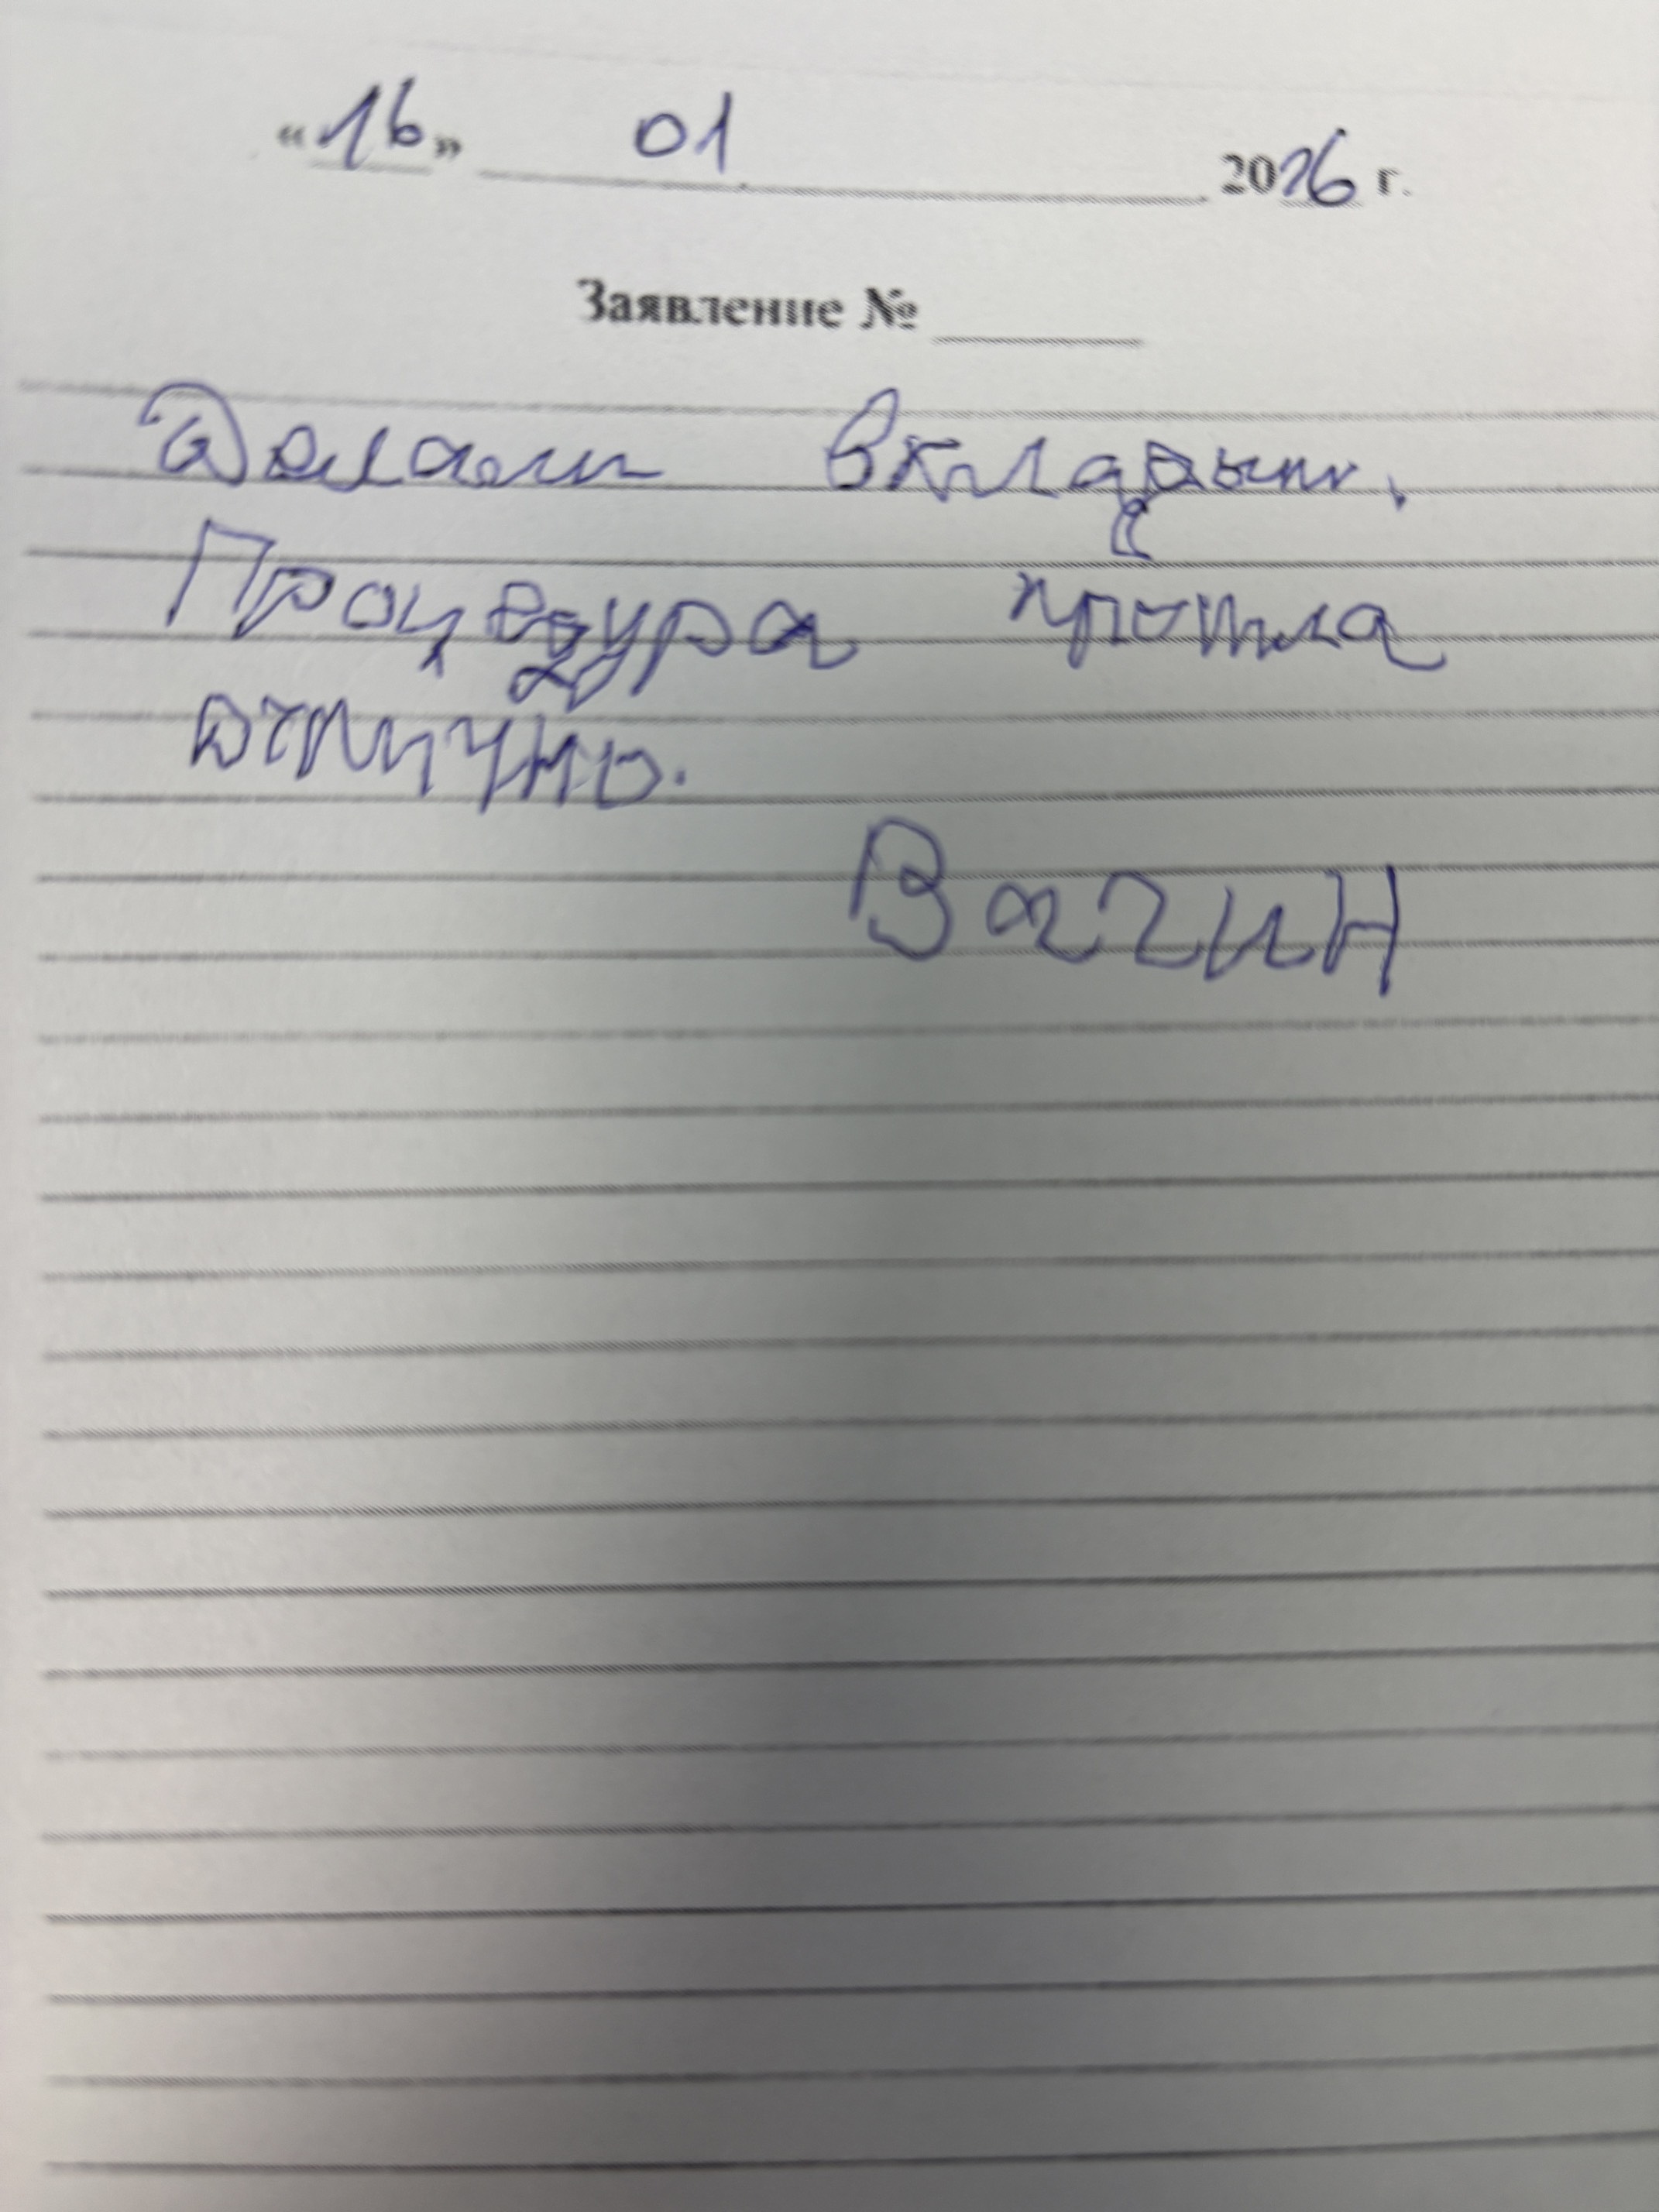 «16» 01 2026 г.
Заявление №
Делали вкладыши.
Процедура прошла
отлично.
Вагин